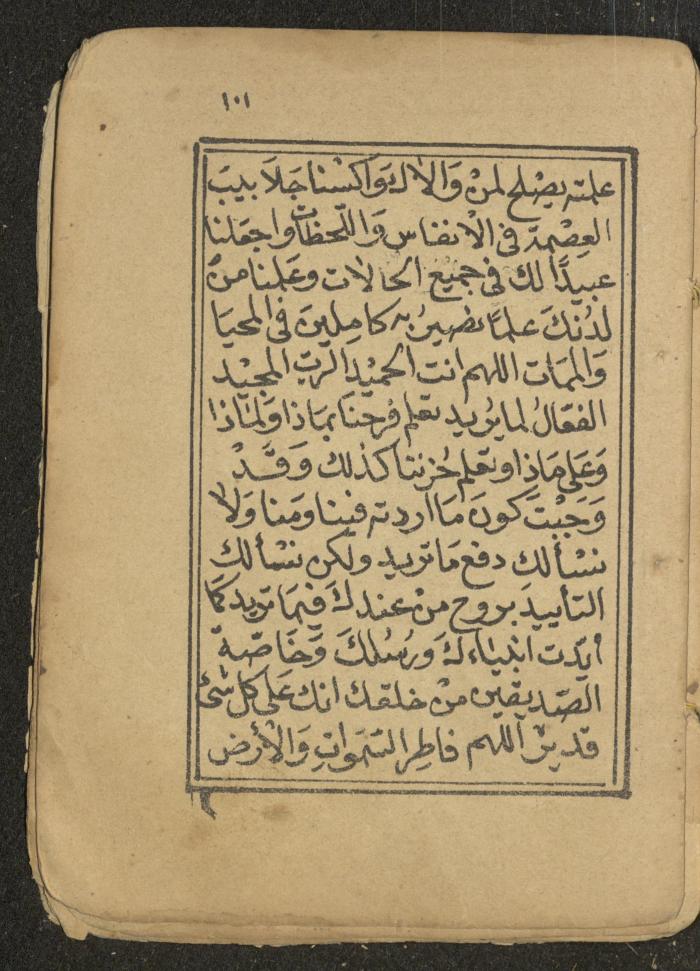 ١٠١
علمته يصلح لمنْ وَالاكَ وَاكسنا جَلَابيبَ
العِصْمة في الْانفاس وَاللّحظات واجعَلنا
عبيدًا لك في جميع الحالات وعَلمنا منْ
لدُنكَ علمًا نصيرُ به كاملينَ في المحيَا
وَالممَات اللهم انت الحميْد الربّ المجيْد
الفعّالُ لما يُريد تعلم فرحنَا بمَاذا وَلماذا
وَعَلى مَاذا وتعلم حُزننا كذلك وَقَدْ
وَجَبْتَ كونَ مَا اردته فينا ومنا وَلا
نسْألك دفع مَا تريد ولكن نسْألك
التأييدَ بروح منْ عندكَ فيمَا تريد كمَا
أيّدت انبيَاءكَ وَرسُلكَ وَخَاصّةَ
الصّديقين منْ خلقك انك عَلى كل شئ
قديرٌ اللهم فاطِر السّمَواتِ وَالْأرض